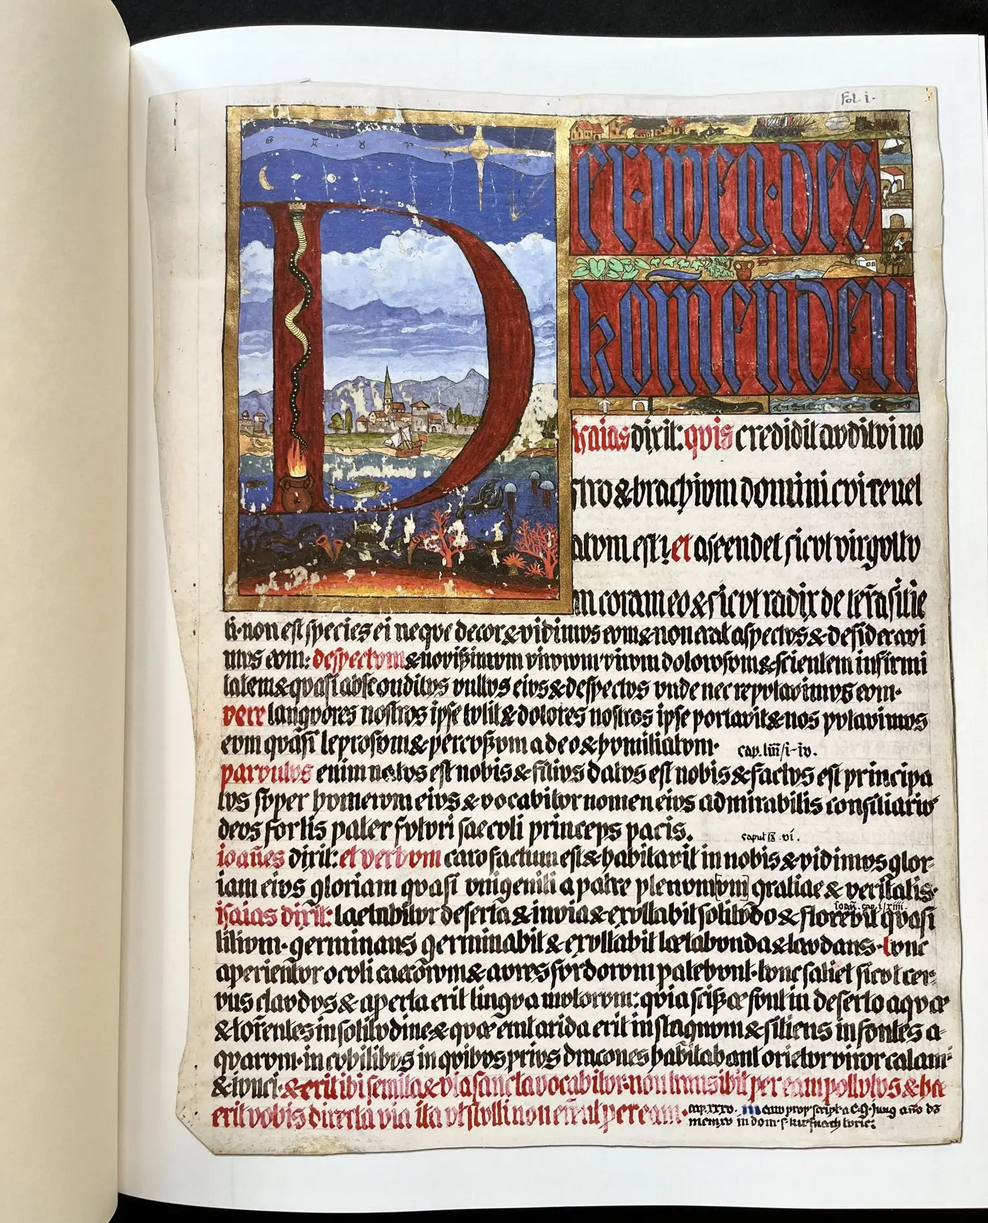 Fol. i.
Der · weg · des
komenden
isaias dixit: qvis credidit avditvi no
stro & brachivm domini cvi revel
atvm est? et ascendet sicvt virgvltv
m coram eo & sicvt radix de terra sitie
ti · non est species ei neqve decor & vidimvs evm & non erat aspectvs & desideravi
mvs evm: despectvm & novißimvm virorvm virvm dolorvm & scientem infirmi
tatem & qvasi absconditvs vvltvs eivs & despectvs vnde nec repvtavimvs evm ·
vere langvores nostros ipse tvlit & dolores nostros ipse portavit & nos pvtavimvs
evm qvasi leprosvm & percvßvm a deo & hvmiliatvm · cap. liii/i-iv.
parvvlvs enim natvs est nobis & filivs datvs est nobis & factvs est principa
tvs svper hvmervm eivs & vocabitvr nomen eivs admirabilis consiliarivs
devs fortis pater fvtvri saecvli princeps pacis. capvt ix. vi.
ioañes dixit: et verbvm caro factum est & habitavit in nobis & vidimvs glor
iam eivs gloriam qvasi vnigeniti a patre plenvm gratiae & veritatis ·
ioañ. cap. i/xiiii.
isaias dixit: laetabitvr deserta & invia & exvltabit solitvdo & florebit qvasi
lilivm · germinans germinabit & exvltabit lætabvnda & lavdans · tvnc
aperientvr ocvli caecorvm & avres svrdorvm patebvnt · tvnc saliet sicvt cer-
vvs clavdvs & aperta erit lingva mvtorvm: qvia scißæ svnt in deserto aqvæ
& torrentes in solitvdine & qvæ erat arida erit in stagnvm & sitiens in fontes a-
qvarvm · in cvbilibvs in qvibvs privs dracones habitabant orietvr viror calami
& ivnci · & erit ibi semita & via sancta vocabitvr · non transibit per eam pollvtvs & hæc
erit vobis directa via ita vt stvlti non errent per eam · cap. xxxv.
manv propr scripta C. G. Jung año dõ
mcmxv in dom. s. kusnach tvric: